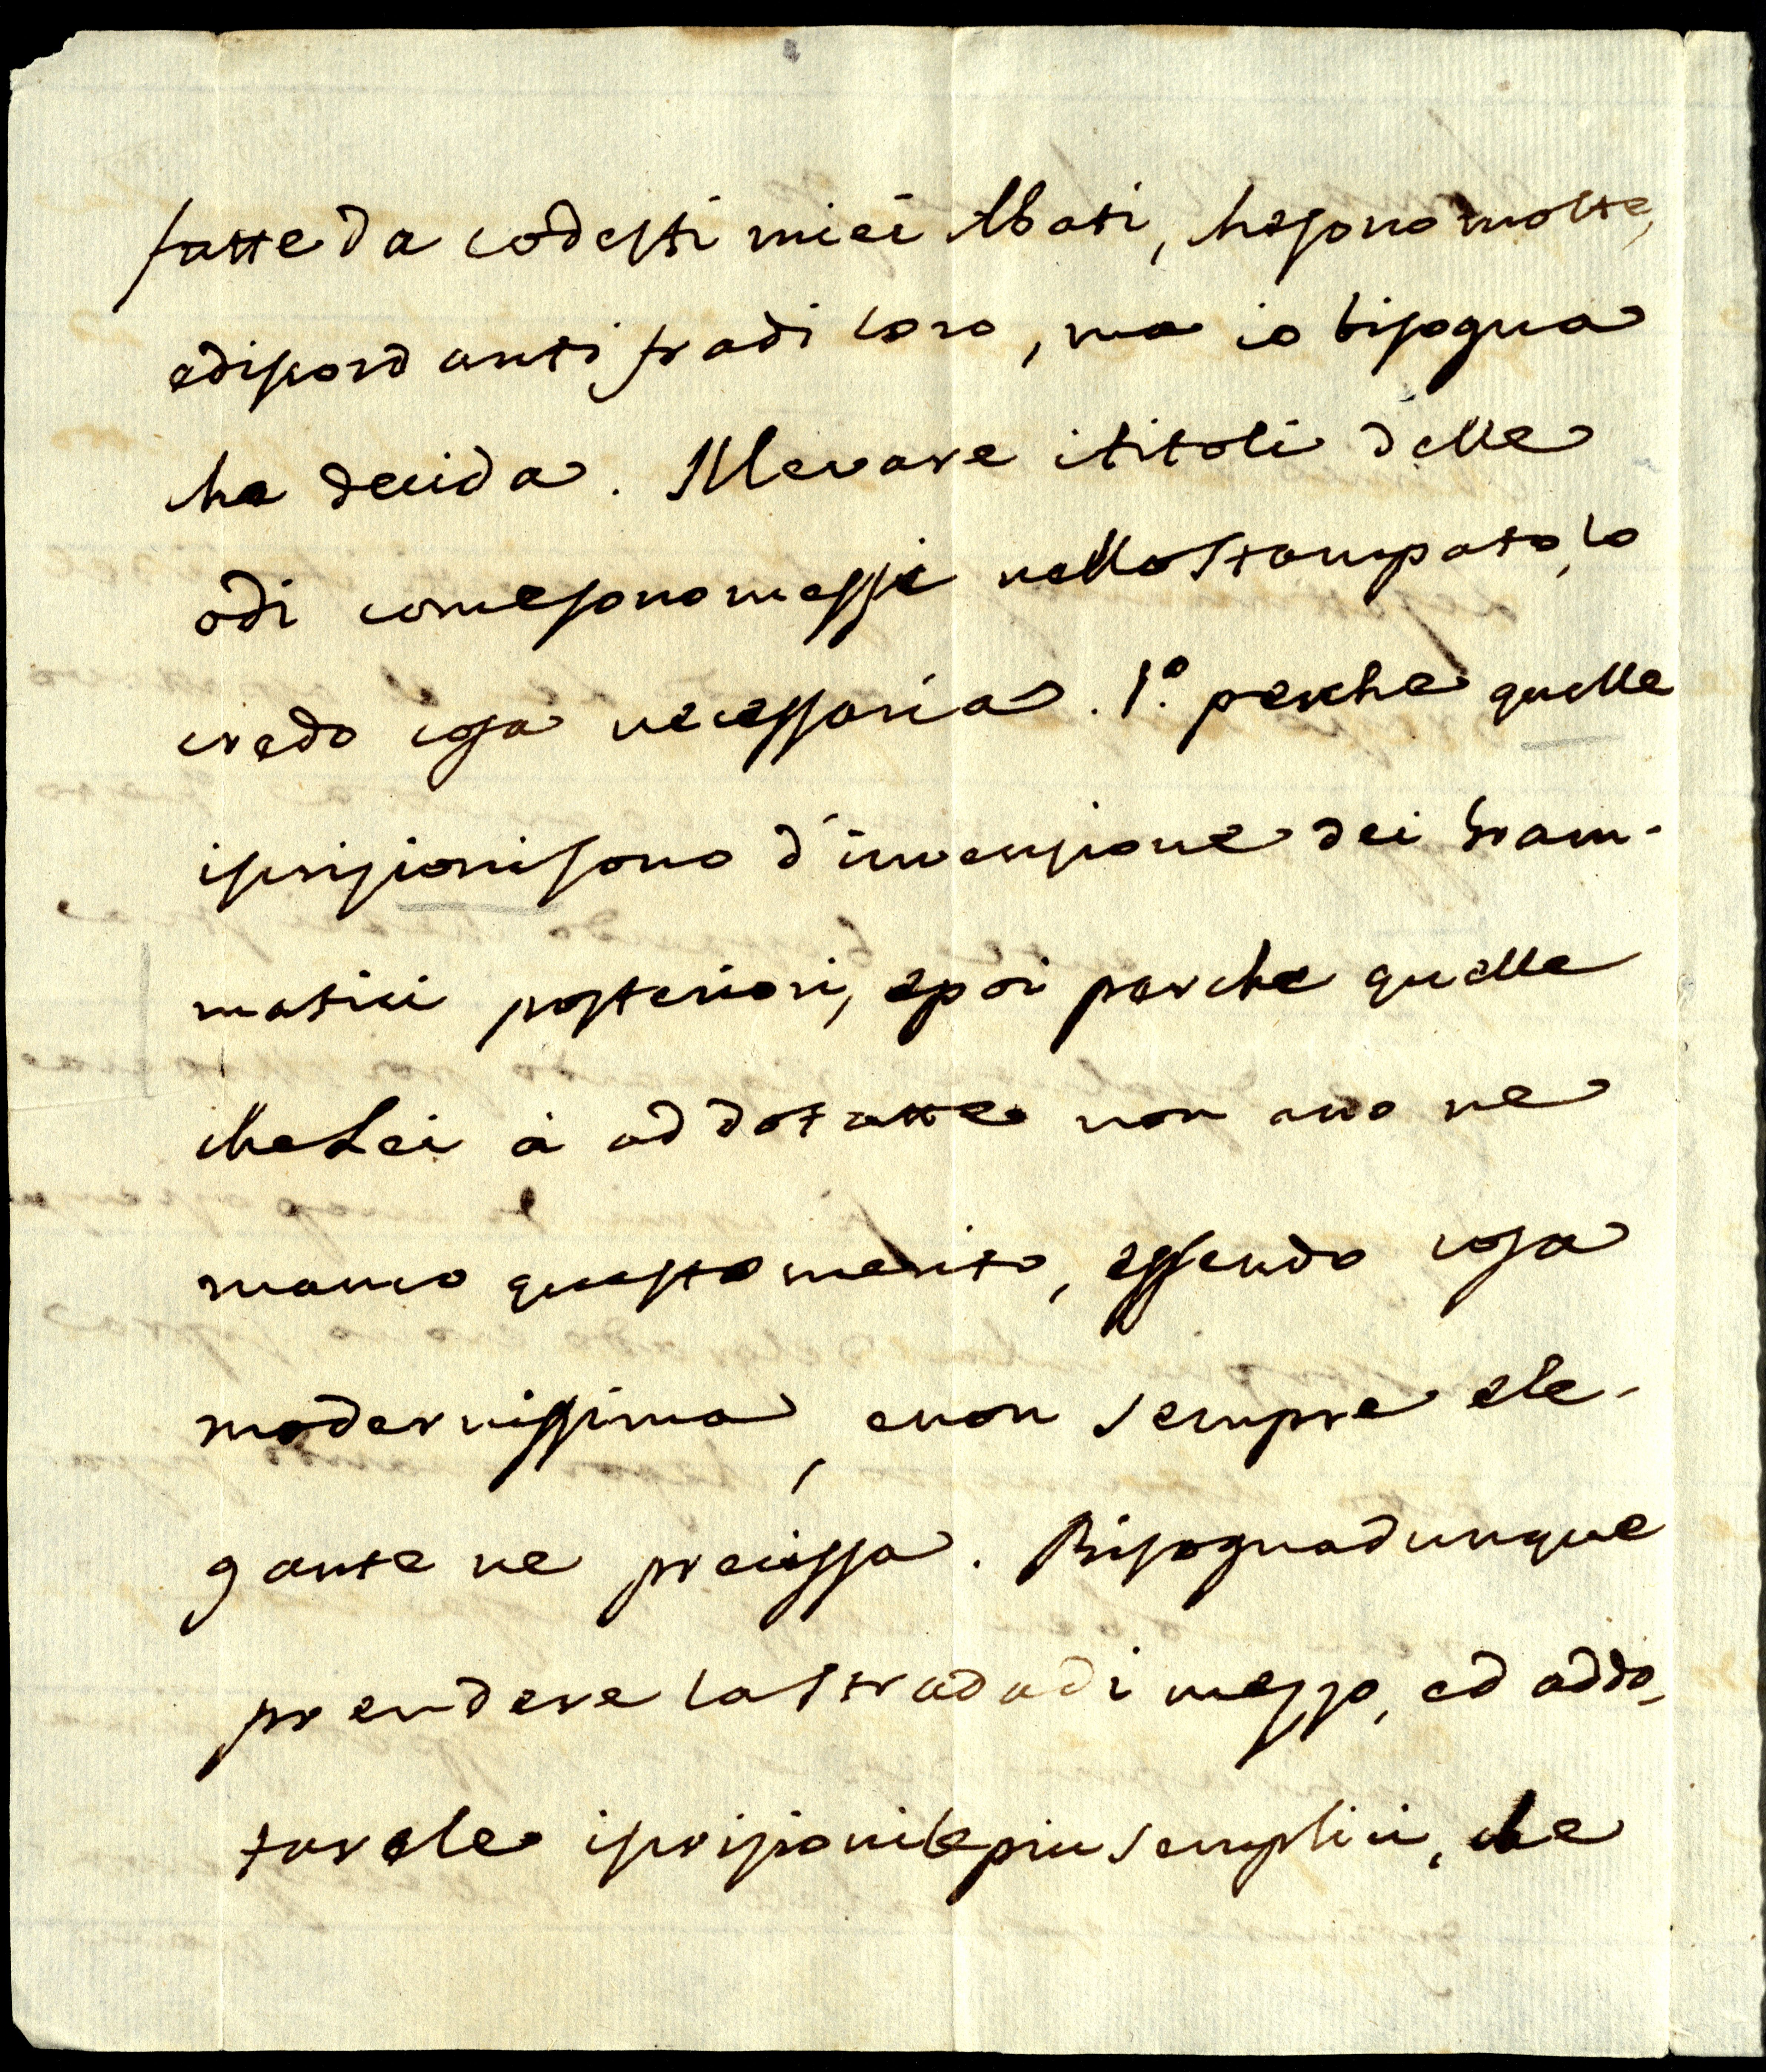 fatte da codesti miei Abati, che sono molte,
e discordanti fra di loro, ma io bisogna
che decida. Il levare i titoli delle
odi come sono messi nello stampato, lo
credo cosa necessaria. 1.º perche quelle
iscrizioni sono d'invenzione dei Gram-
matici posteriori, e poi perche quelle
che Lei à addotatte non ano ne
manco questo merito, essendo cosa
modernissima, e non sempre ele-
gante ne precissa. Bisogna dunque
prendere la strada di mezzo, ed addo-
tare le iscrizioni le piu semplici, che